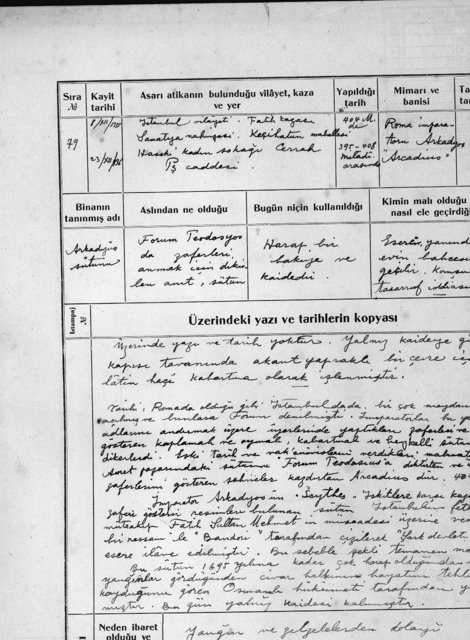 Sıra № Kayit tarihi Asarı atikanın bulunduğu vilâyet, kaza ve yer Yapıldığı tarih Mimarı ve banisi
79
8/XII/
23/XII/
İstanbul vilâyeti. Fatih kazası
Sanatya nahiyesi. Keçihatun mahallesi
Haseki kadın sokağı Cerrah
Pş caddesi.
404 M. de
395-408
miladi
arasında
Roma impara-
toru Arkadyos
"Arcadius"
Binanın tanınmış adı Aslından ne olduğu Bugün niçin kullanıldığı Kimin malı olduğu nasıl ele geçirdiği
Arkadyos
sütunu
Forum Teodosyos
da zaferleri
anmak icin diki-
len anıt, sütun
Harap bir
bakiye ve
kaidedir.
Eserin, yanında
evin bahçesi
geçilir. Komşu
tasarruf iddiası
İstampaj №
Üzerindeki yazı ve tarihlerin kopyası
Üzerinde yazı ve tarih yoktur. Yalnız kaideye
kapısı tavanında akant yapraklı bir çevre
lâtin haçı kabartma olarak işlenmiştir.
Tarihi: Romada olduğu gibi İstanbulda da, bir çok meydan
açılmış ve bunlara Forum denilmişti. İmparatorlar
adlarını andırmak üzere üzerlerinde yaptıkları zaferleri
gösteren kaplamalı ve oymalı, kabartmalı ve heykelli sütun
dikerlerdi. Eski tarih ve vak'anüvislerin verdikleri malumat
Avret pazarındaki sütunu Forum Teodosius'a diktiten ve
zaferlerini gösteren sahneler kazdırtan Arcadius dür. 40
İmparator Arkadyos'ın "Scythes" İskitlere karşı
zaferi gösterir resimleri bulunan sütun İstanbulun
müteakip Fatih Sultan Mehmet in müsaadesi üzerine
bir ressam'le "Bandori" tarafından çizilerek Şark devlet
esere ilâve edilmiştir. Bu sebeble şekli tamamen
Bu sütun 1695 yılına kadar çok harap olduğundan
yangınlar gördüğünden civar halkının hayatını tehl
koyduğunu gören Osmanlı hükumeti tarafından
mıştır. Bu gün yalnız kaidesi kalmıştır.
Neden ibaret olduğu ve
Yangın ve zelzelelerden dolayı